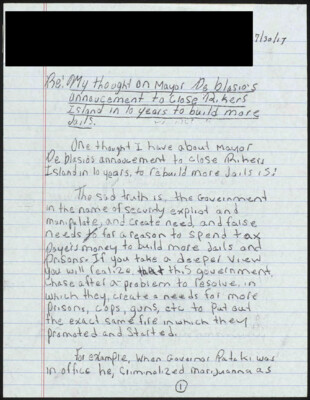 7/30/17
Re: My thought on Mayor De blasio's
annoucement to close Rikers
Island in 10 years to build more
Jails.
One thought I have about Mayor
De blasios annoucement to close Rikers
Island in 10 years, to rebuild more Jails is:
The sad truth is, the Government
in the name of security exploit and
manipulate, and create need and false
needs for a reason to spend tax
Payers money to build more Jails and
Prisons. If you take a deeper view
you will realize this government
Chase after a problem to resolve, in
which they create a needs for more
Prisons, cops, guns, etc to put out
the exact same fire in which they
promoted and started.
for example, When Governor Pataki was
in office he, Criminalized marijuanna as
1